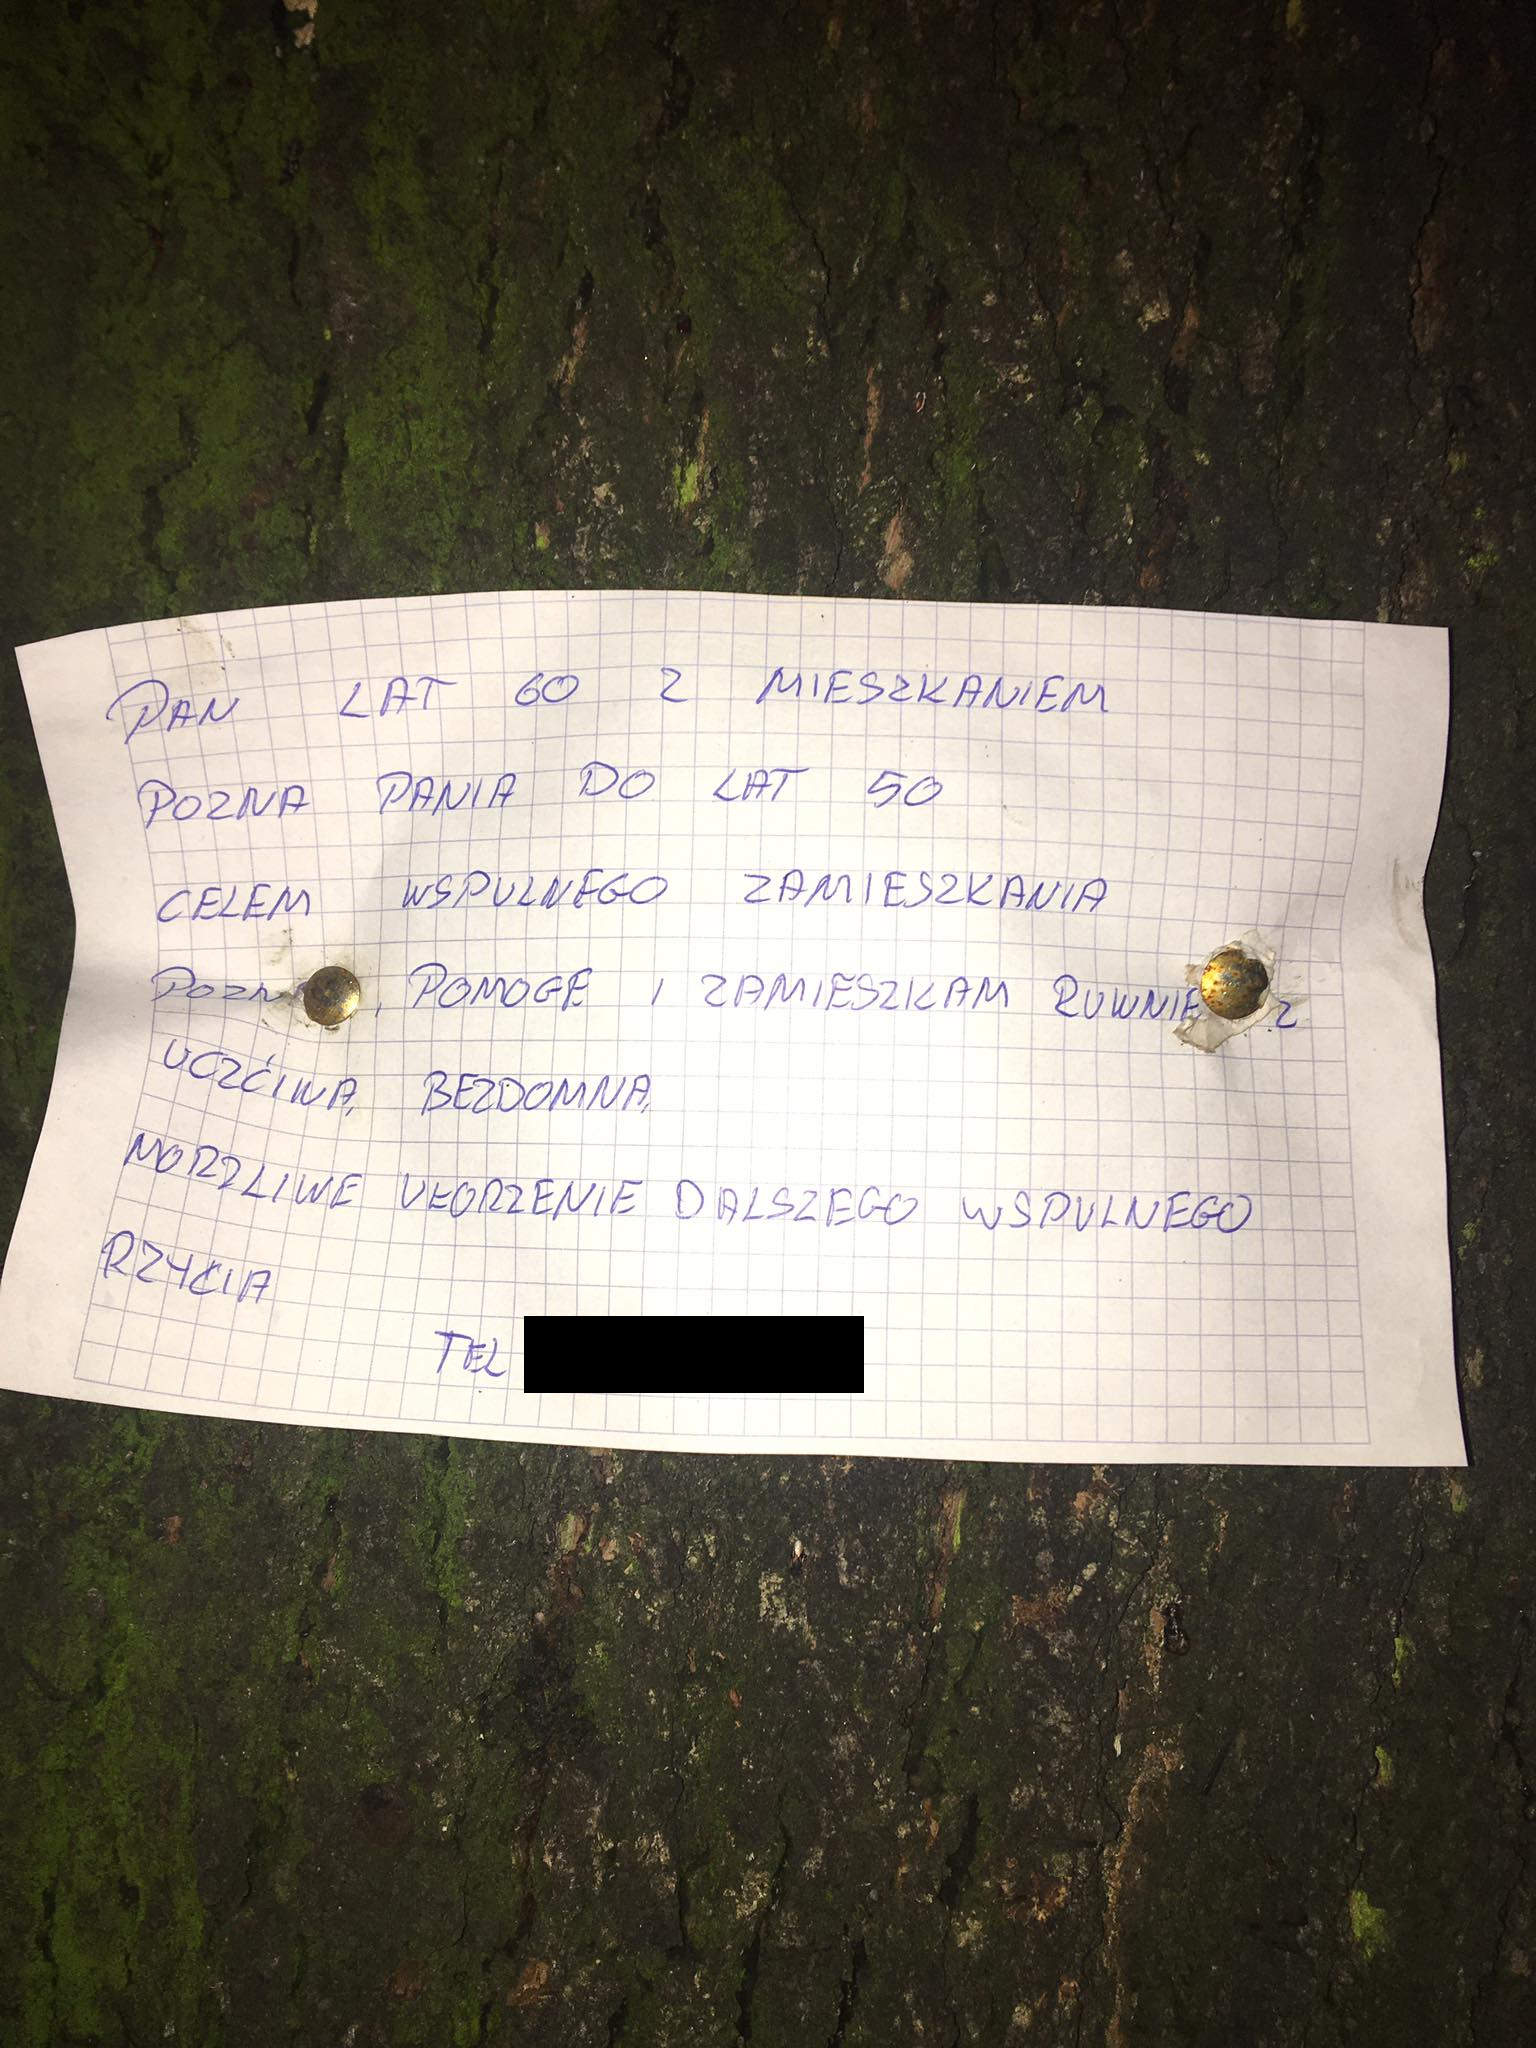 PAN LAT 60 Z MIESZKANIEM
POZNA PANIA DO LAT 50
CELEM WSPULNEGO ZAMIESZKANIA
POMOGE I ZAMIESZKAM RUWNIE Z
UCZĆIWA, BEZDOMNA,
MORZLIWE UŁORZENIE DALSZEGO WSPULNEGO
RZYCIA
TEL